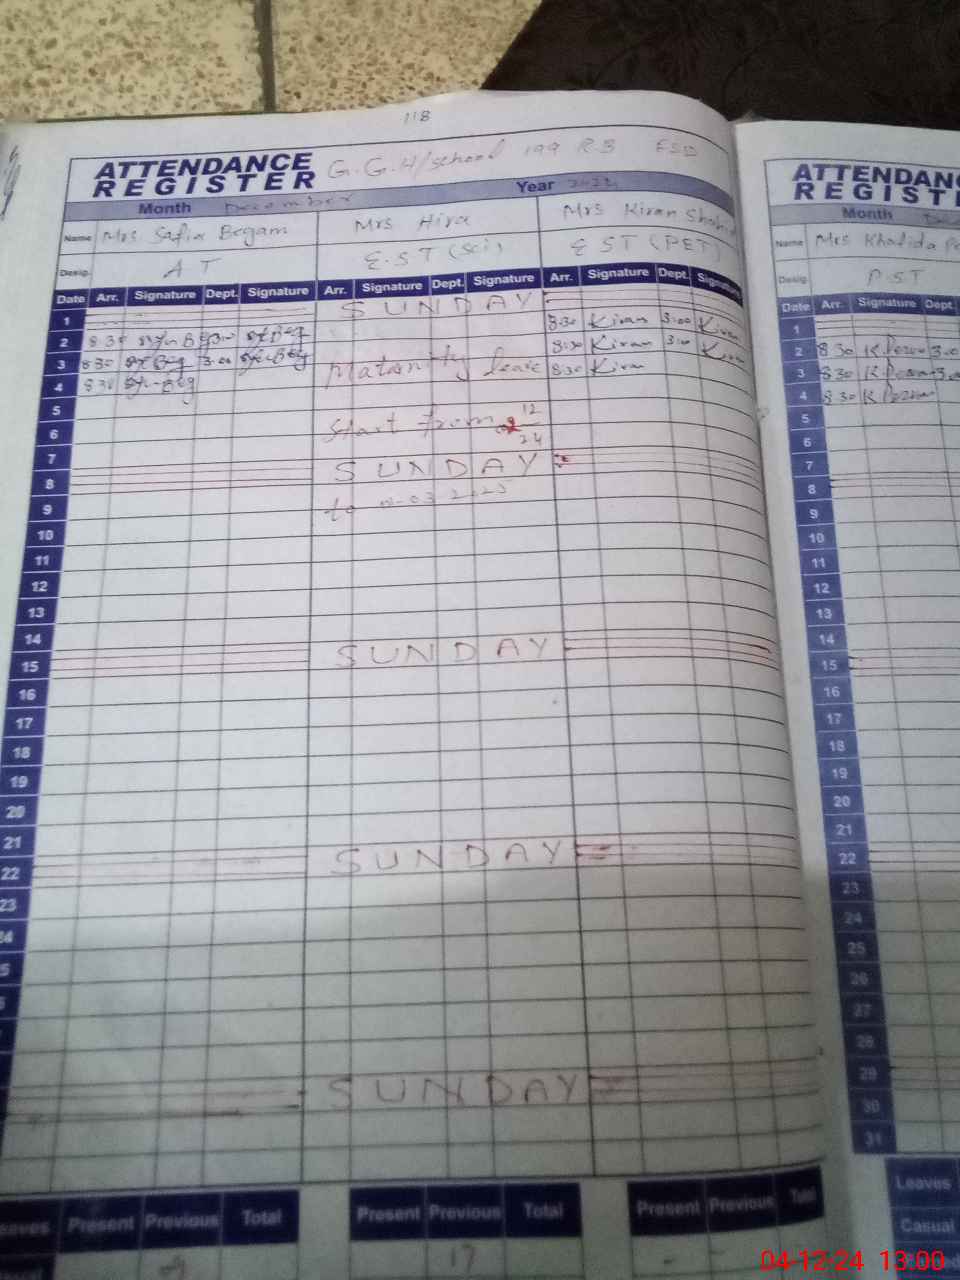 118
ATTENDANCE REGISTER G.G.H/school 199 R.B FSD
ATTENDAN
REGIST
Month December Year
Month
Name Mrs. Safia Begam Mrs Hira Mrs Kiran Shahid
Name Mrs Khalida
Desig. A T E.S T (Sci) E S T (PET)
Desig. P.S.T
Date Arr. Signature Dept. Signature Arr. Signature Dept. Signature Arr. Signature Dept. Signature
Date Arr. Signature Dept
1 SUNDAY
2 8:30 8:30 Kiran 3:00 Kiran
3 8:30 3:00 Matarnity leave 8:30 Kiran 3:00 Kiran
4 8:30 8:30 Kiran
5
6 Start from 12 24
7
8 SUNDAY
9 to 03-2025
10
11
12
13
14
15 SUNDAY
16
17
18
19
20
21
22 SUNDAY
23
SUNDAY
1
2 8:30 3:00
3 8:30 3:00
4 8:30
5
6
7
8
9
10
11
12
13
14
15
16
17
18
19
20
21
22
23
24
25
26
27
28
29
30
31
Present Previous Total Present Previous Total Present Previous Total
17
Leaves
Casual
04-12-24 13:00